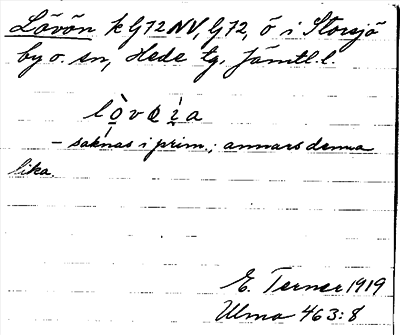 Lövön k G12NV, G12, ö i Storsjö
by o. sn, Hede tg. Jämtl. l.
lòvœìa
– saknas i prim.; annars denna
lika.
E. Terner 1919
Ulma 463:8